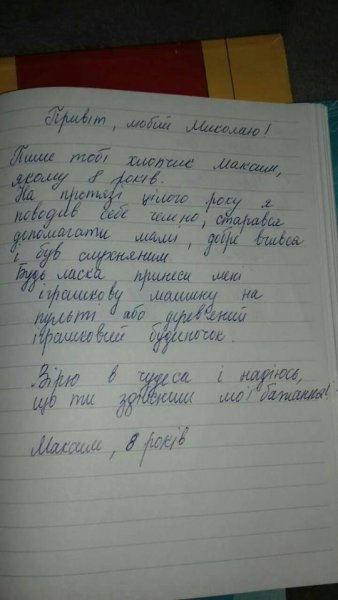 Привіт, любий Миколаю!
Пише тобі хлопчик Максим,
якому 8 років.
На протязі цілого року я
поводив себе чемно, старався
допомагати мамі, добре вчився
і був слухняним.
Будь ласка принеси мені
іграшкову машинку на
пульті або дерев'яний
іграшковий будиночок.
Вірю в чудеса і надіюсь,
що ти здійсниш мої бажання!
Максим, 8 років